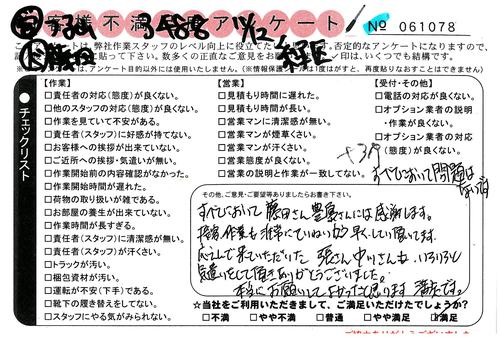 お客様不満足度アンケート
№ 061078
チェックリスト
【作業】
□責任者の対応(態度)が良くない。
□他のスタッフの対応(態度)が良くない。
□作業を見ていて不安がある。
□責任者(スタッフ)に好感が持てない。
□お客様への挨拶が出来ていない。
□ご近所への挨拶・気遣いが無い。
□作業開始前の内容確認がなかった。
□作業開始時間が遅れた。
□荷物の取り扱いが雑である。
□お部屋の養生が出来ていない。
□作業時間が長すぎる。
□責任者(スタッフ)に清潔感が無い。
□責任者(スタッフ)が汗くさい。
□トラックが汚い。
□梱包資材が汚い。
□運転が不安(下手)である。
□靴下の履き替えをしてない。
□スタッフにやる気がみられない。
【営業】
□見積もり時間に遅れた。
□見積もり時間が長い。
□営業マンに清潔感が無い。
□営業マンが煙草くさい。
□営業マンが汗くさい。
□営業態度が良くない。
□営業の説明と作業が一致してない。
【受付・その他】
□電話の対応が良くない。
□オプション業者の説明
・作業が良くない。
□オプション業者の対応
(態度)が良くない。
すべてにおいて問題は
ないです
その他、ご意見・ご要望等ありましたらお書き下さい。
すべてにおいて藤田さん豊泉さんには感謝します。
接客、作業も非常にていねいかつ早くしてい頂いてます。
応えんで来ていただいた 張さん 中川さんも いろいろと
気遣いをして頂きありがとうございました。
本当にお願いしてよかったと思います 満足です。
☆当社をご利用いただきまして、ご満足いただけたでしょうか?
□不満 □やや不満 □普通 □やや満足 □満足